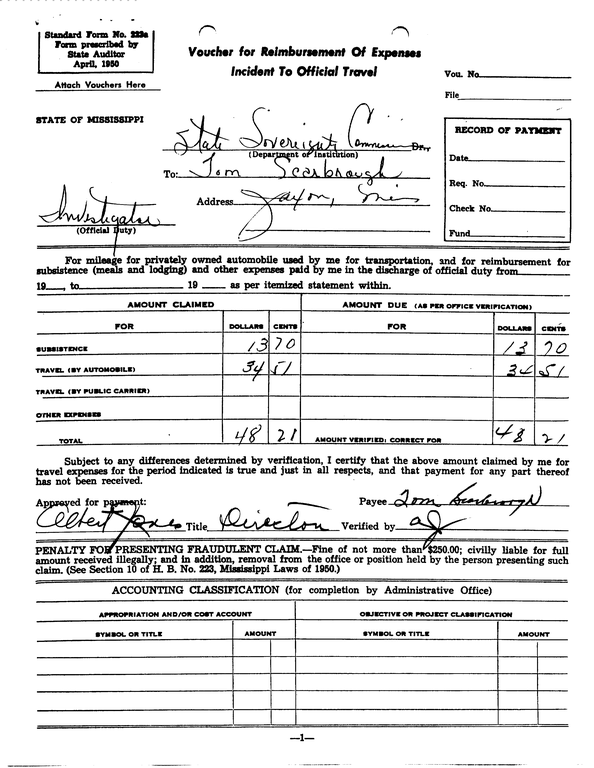 Standard Form No. 223a
Form prescribed by
State Auditor
April, 1950
Attach Vouchers Here
Voucher for Reimbursement Of Expenses
Incident To Official Travel
Vou. No.
File
STATE OF MISSISSIPPI
State Sovereignty Commission Dr.,
(Department of Institution)
To: Tom Scarbrough
Address Jaxon, Miss
Investigator
(Official Duty)
RECORD OF PAYMENT
Date
Req. No.
Check No.
Fund
For mileage for privately owned automobile used by me for transportation, and for reimbursement for
subsistence (meals and lodging) and other expenses paid by me in the discharge of official duty from
19___, to 19 ___ as per itemized statement within.
AMOUNT CLAIMED AMOUNT DUE (AS PER OFFICE VERIFICATION)
FOR DOLLARS CENTS FOR DOLLARS CENTS
SUBSISTENCE 13 70 13 70
TRAVEL (BY AUTOMOBILE) 34 51 34 51
TRAVEL (BY PUBLIC CARRIER)
OTHER EXPENSES
TOTAL 48 21 AMOUNT VERIFIED: CORRECT FOR 48 21
Subject to any differences determined by verification, I certify that the above amount claimed by me for
travel expenses for the period indicated is true and just in all respects, and that payment for any part thereof
has not been received.
Approved for payment: Payee Tom Scarbrough
Albert Jones Title Director Verified by aj
PENALTY FOR PRESENTING FRAUDULENT CLAIM.—Fine of not more than $250.00; civilly liable for full
amount received illegally; and in addition, removal from the office or position held by the person presenting such
claim. (See Section 10 of H. B. No. 223, Mississippi Laws of 1950.)
ACCOUNTING CLASSIFICATION (for completion by Administrative Office)
APPROPRIATION AND/OR COST ACCOUNT OBJECTIVE OR PROJECT CLASSIFICATION
SYMBOL OR TITLE AMOUNT SYMBOL OR TITLE AMOUNT
—1—